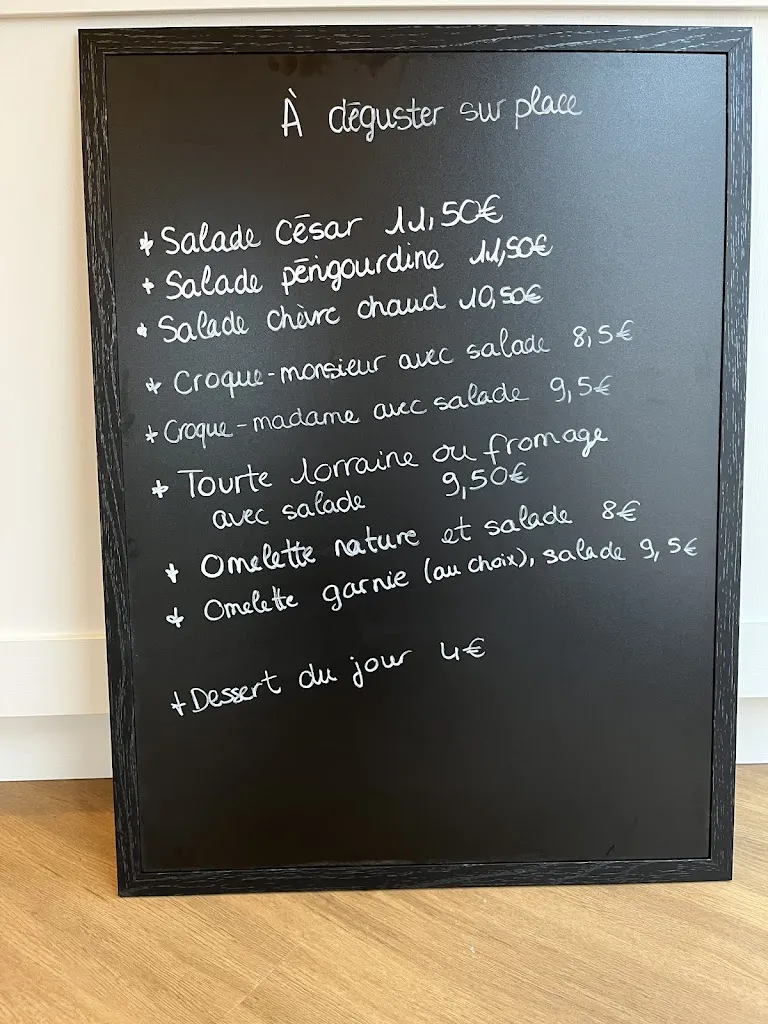 À déguster sur place
+ Salade César 11,50€
+ Salade périgourdine 11,50€
+ Salade chèvre chaud 10,50€
+ Croque-monsieur avec salade 8,5€
+ Croque-madame avec salade 9,5€
+ Tourte lorraine ou fromage
avec salade 9,50€
+ Omelette nature et salade 8€
+ Omelette garnie (au choix), salade 9,5€
+ Dessert du jour 4€